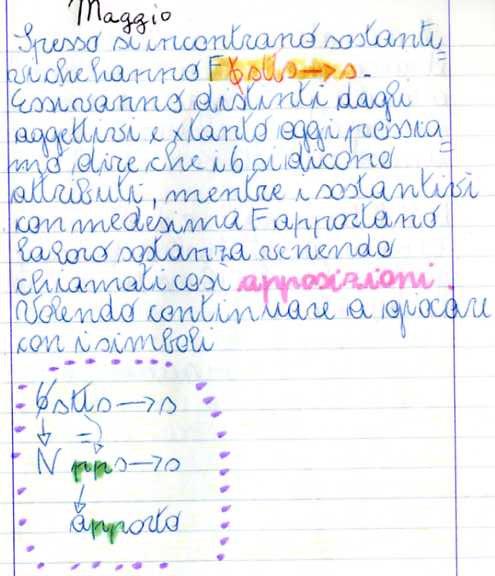 Maggio
Spesso si incontrano sostanti=
vi che hanno F ϕsttls→s.
Essi vanno distinti dagli
aggettivi e xtanto oggi possia=
mo dire che i 6 si dicono
attributi, mentre i sostantivi
con medesima F apportano
la loro sostanza venendo
chiamati così apposizioni.
Volendo continuare a giocare
con i simboli
s→s
↓ =
N pps→s
↓
apporto